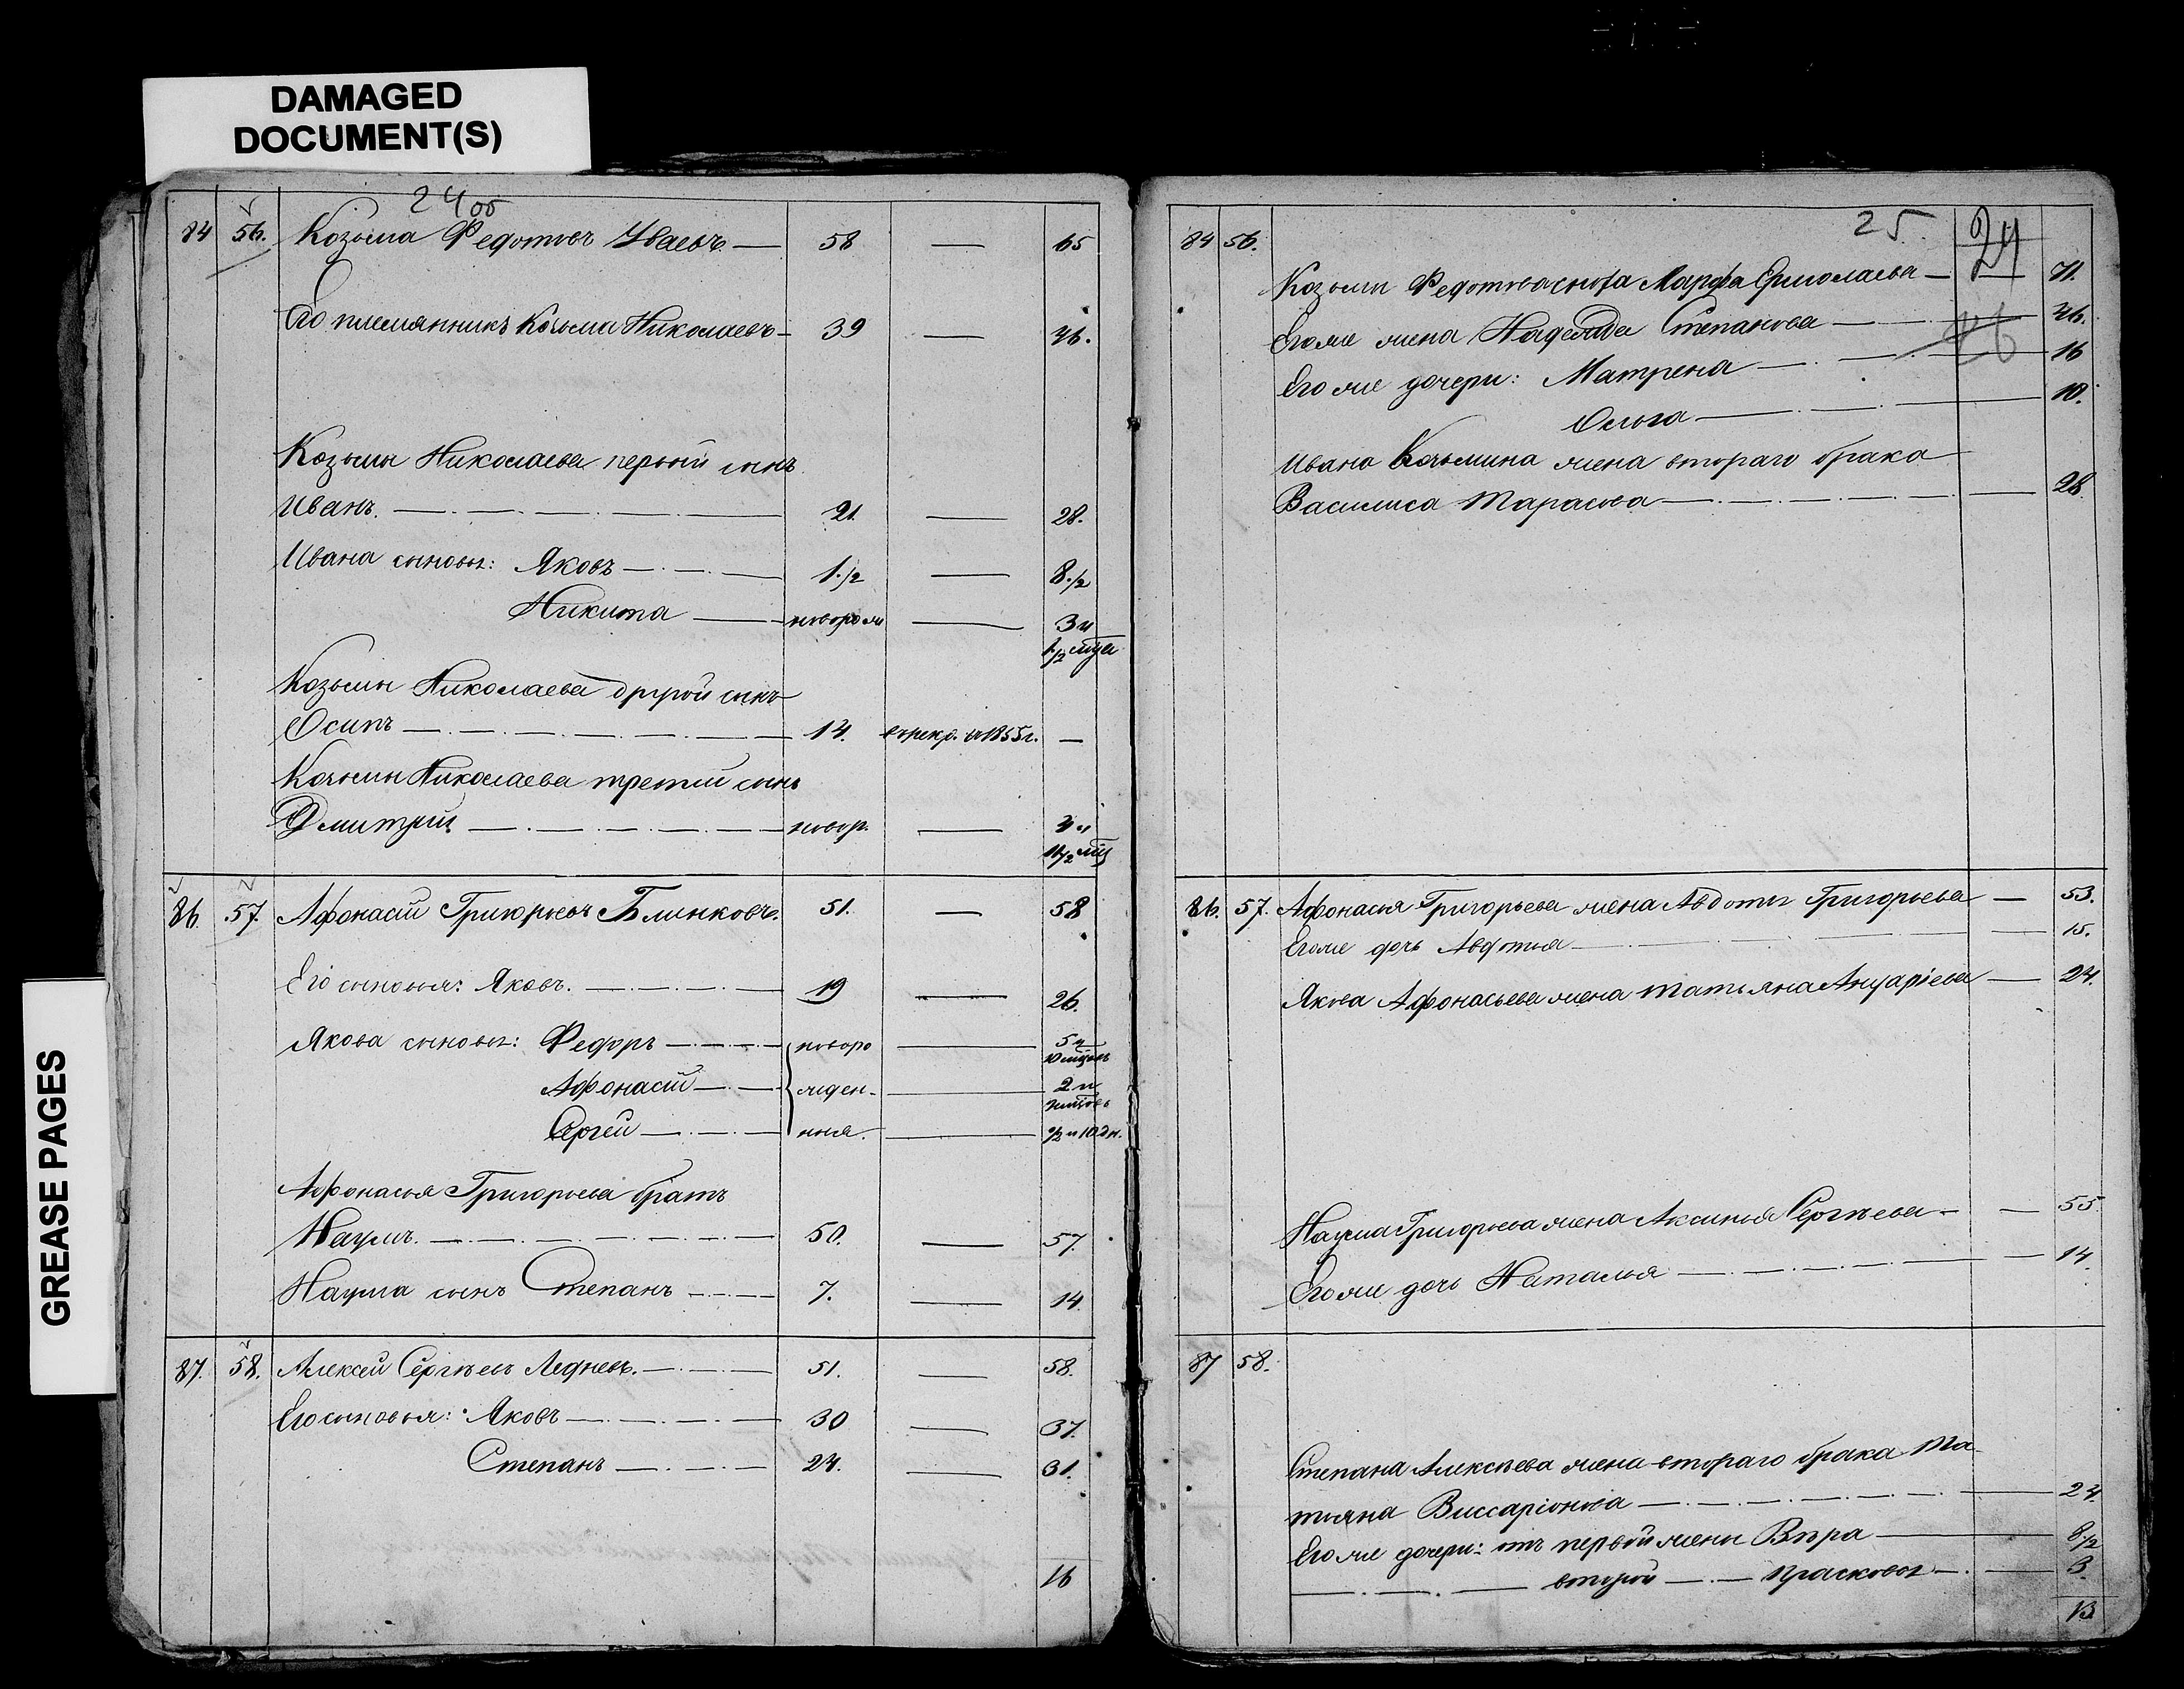 DAMAGED
DOCUMENT(S)
GREASE PAGES
24 об
84 56. Козьма Федотовъ Уваевъ — 58 — 65
Его племянникъ Козьма Николаевъ — 39 — 46.
Козьмы Николаева первый сынъ
Иванъ. — 21. — 28.
Ивана сыновья: Яковъ — 1 1/2 — 8 1/2
Никита — новорож — 3 и
1/2 мца
Козьмы Николаева другой сынъ
Осипъ — 14. въ рекр. въ 1855 г. —
Козьмы Николаева третий сынъ
Дмитрий — новор. —
86. 57. Афонасий Григорьевъ Блинковъ. 51. — 58
Его сыновья: Яковъ. — 19 — 26.
Якова сыновья: Федоръ — новоро — 5 и
10 мцовъ
Афонасий — жден- — 2 и
мцовъ
Сергей — ныя. — 1/2 и 10 дн.
Афонасья Григорьева братъ
Наумъ. — 50. — 57.
Наума сынъ Степанъ — 7. — 14.
87. 58. Алексей Сергѣевъ Ледневъ. — 51. — 58.
Его сыновья: Яковъ — 30 — 37.
Степанъ — 24. — 31.
16
25. 24
84 56.
Козьмы Федотова сноха Марфа Ермолаева — 71.
Его же жена Надежда Степанова — 46.
Его же дочери: Матрена — 16
Ольга — 10.
Ивана Козьмина жена втораго брака
Василиса Тарасова — 28
86. 57. Афонасья Григорьева жена Авдотья Григорьева — 53.
Его же дочь Авдотья — 15.
Якова Афонасьева жена Татьяна — 24.
Наума Григорьева жена Аксинья Сергѣева — 55.
Его же дочь Наталья — 14.
87 58.
Степана Алексѣева жена втораго брака Та-
тьяна Виссаріонова — 24.
Его же дочери: отъ первой жены Вѣра — 8 1/2
— второй — Прасковья — 3.
13.